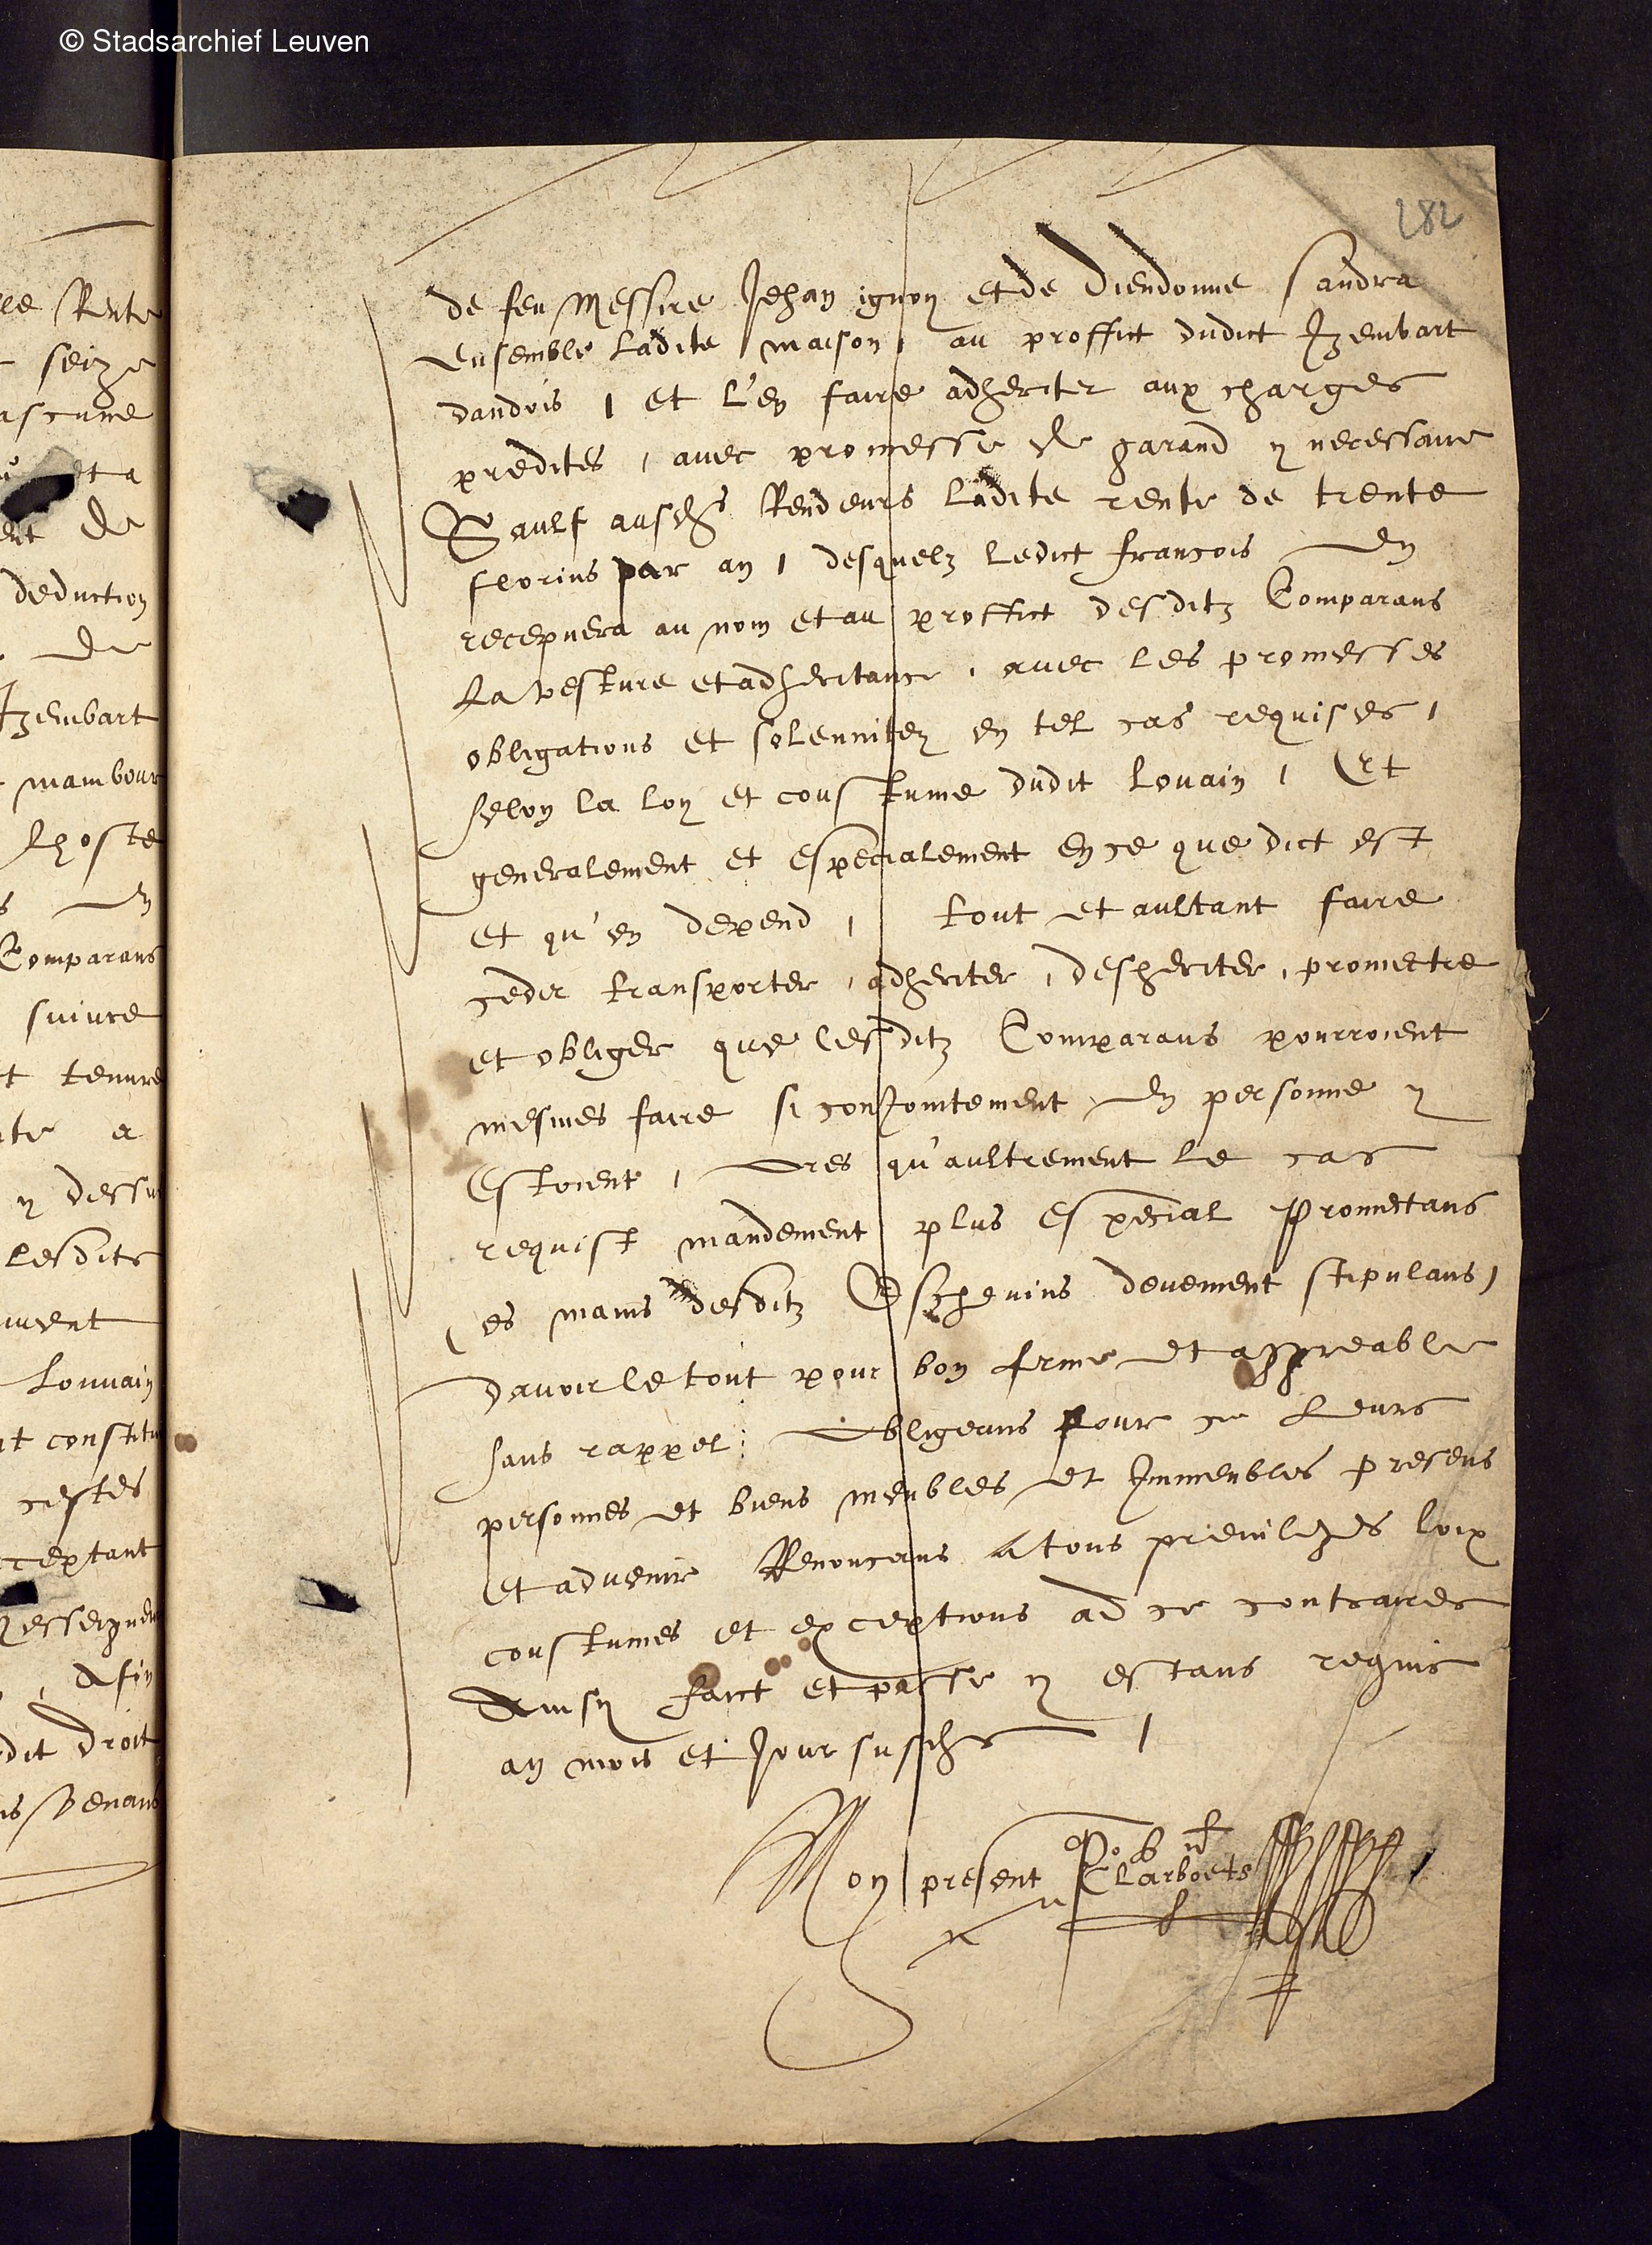 © Stadsarchief Leuven
282
de feu Messire Jehan ignon et de Diendonne Sandra
ensemble ladite maison, au proffict dudict Izembart
dandois, et l'en faire adheriter aux charges
predites, avec promesse de garand y necessaire
Saulf ausdits Rendeurs ladite rente de trente
florins par an, desquelz ledict francois en
recepvera au nom et au proffict desditz Comparans
la vesture et adheritance, avec les promesses
obligations et solennitez en tel cas requises,
selon la loy et coustume dudit Louain, Et
generalement et especialement en ce que dict est
et qu'en depend, tout et aultant faire
ceder transporter, adheriter, desheriter, promectre
et obliger que lesditz Comparans pourroient
mesmes faire si conjointement en personne y
estoient, ores qu'aultrement le cas
requist mandement plus especial Promectans
es mains desditz Eschevins deuement stipulans,
davoir le tout pour bon ferme et aggreable
sans rappel; obligeans pour ce leurs
personnes et biens meubles et Immeubles presens
et advenir Renonceans a tous previleges loix
coustumes et exceptions ad ce contraires
Ainsy faict et passe y estans requis
an mois et Jour susdits
Moy present
Clarboets
le Rente
seize
ascune
et a
de
deduction
de
Izembart
mambour
Lhoste
en
Comparans
suivre
tenure
a
y dessu
lesdits
Louvain
constitu
cestes
Afin
dit droit
Venans